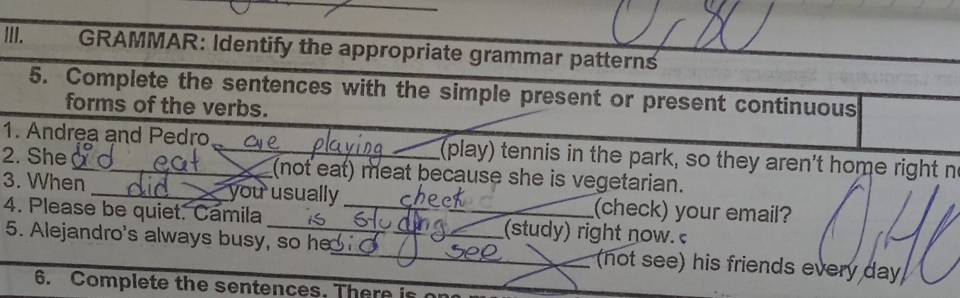 0,80
III. GRAMMAR: Identify the appropriate grammar patterns
5. Complete the sentences with the simple present or present continuous
forms of the verbs.
1. Andrea and Pedro are playing (play) tennis in the park, so they aren't home right
2. She did eat (not eat) meat because she is vegetarian.
3. When did you usually check (check) your email?
4. Please be quiet. Camila is studing (study) right now.
5. Alejandro's always busy, so he did see (not see) his friends every day.
0,40
6. Complete the sentences. There is one